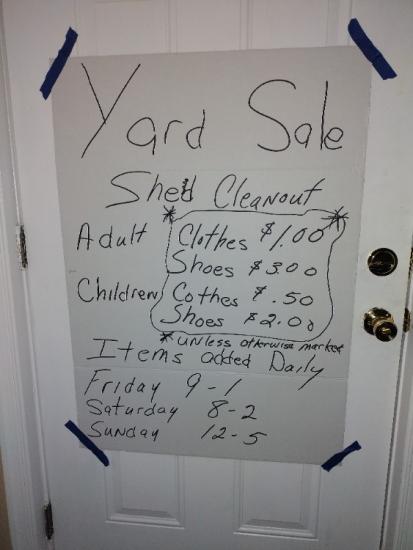 Yard Sale
Shed Cleanout
* *
Adult Clothes $1.00
Shoes $3.00
Children Cothes $.50
Shoes $2.00
* unless otherwise marked
Items added Daily
Friday 9-1
Saturday 8-2
Sunday 12-5